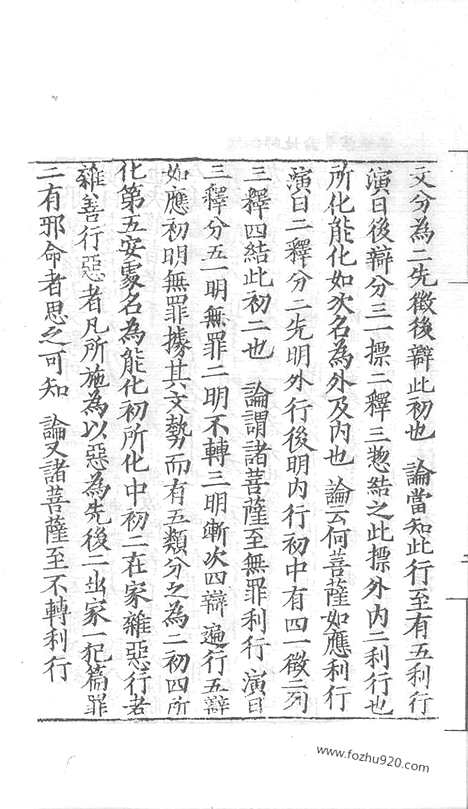 文分為二先徵後辯此初也　論當知此行至有五利行
演曰後辯分三一標二釋三惣結之此標外內二利行也
所化能化如次名為外及內也　論云何菩薩如應利行
演曰二釋分二先明外行後明內行初中有四一徵二列
三釋四結此初二也　論謂諸菩薩至無罪利行　演曰
三釋分五一明無罪二明不轉三明漸次四辯遍行五辯
如應初明無罪據其文勢而有五類分之為二初四所
化第五安處名為能化初所化中初二在家雜惡行者
雜善行惡者凡所施為以惡為先後二出家一犯篇罪
二有邪命者思之可知　論又諸菩薩至不轉利行
www.fozhu920.com